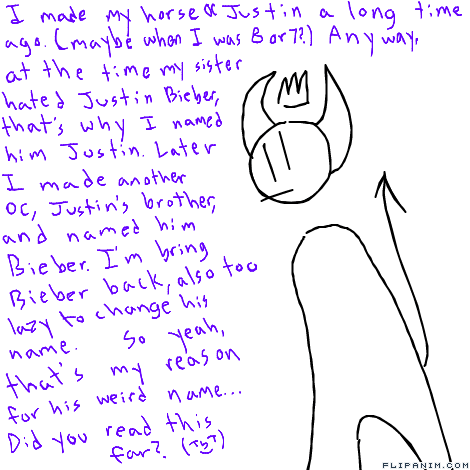 I made my horse OC Justin a long time
ago. (maybe when I was 8 or 7?) Anyway,
at the time my sister
hated Justin Bieber,
that's why I named
him Justin. Later
I made another
OC, Justin's brother,
and named him
Bieber. I'm bring
Bieber back, also too
lazy to change his
name. So yeah,
that's my reason
for his weird name...
Did you read this
far?
FLIPANIM.COM